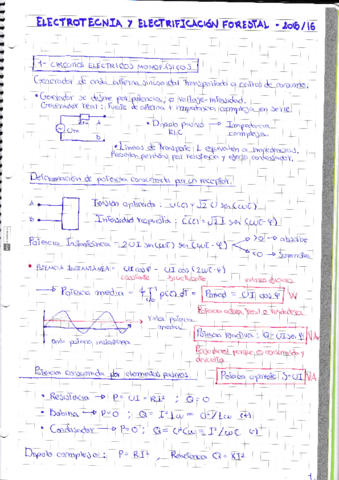 ELECTROTECNIA Y ELECTRIFICACIÓN FORESTAL - 2015/16
1- CIRCUITOS ELÉCTRICOS MONOFÁSICOS
Generador de onda alterna sinusoidal transportada a centros de consumo.
• Generador se define por potencia, o voltaje-intensidad.
Generador real: Fuente de alterna + impedancia compleja en serie
A
B
• Dipolo pasivo → Impedancia
RLC compleja
• Líneas de transporte: L equivalen a impedancias.
Determinación de potencia consumida por un receptor.
A
B
Tensión aplicada: u(t) = √2 U sen(ωt)
Intensidad respuesta: i(t) = √2 I sen(ωt-φ)
Potencia Instantánea = 2UI sen(ωt) sen(ωt-φ)
>0 → absorbe
<0 → suministra
• POTENCIA INSTANTÁNEA = UI cosφ - UI cos(2ωt-φ)
constante fluctuante
→ Potencia media = 1/T ∫ p(t) dt = Pmed = UI cosφ W
Potencia activa, real o
valor potencia media
Potencia reactiva: Q = UI sen φ VAr
Potencia aparente: S=UI VA
Potencia consumida por elementos pasivos
• Resistencia → P = UI = RI² ; Q=0
• Bobina → P=0 ; Q = I²Lω = U²/Lω (+)
• Condensador → P=0 ; Q = U²Cω = I²/ωC (-)
Dipolo complejo: P = RI² , Reactiva Q = XI²
1.